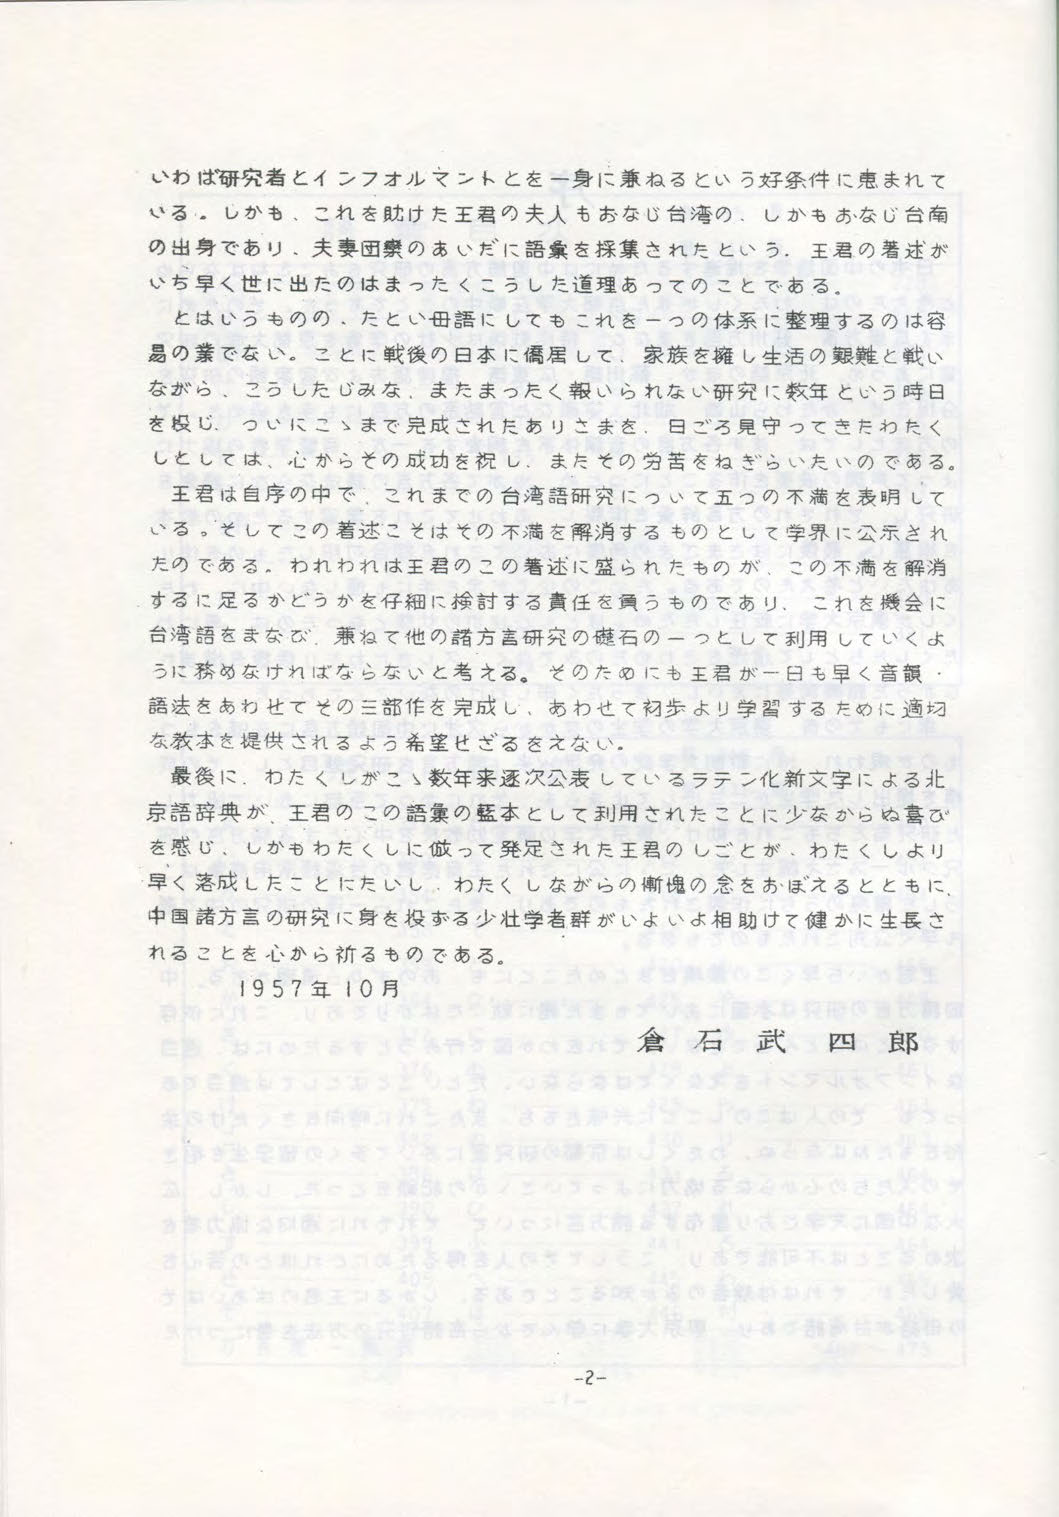 いわば研究者とインフオルマントとを一身に兼ねるという好条件に恵まれて
いる。しかも、これを助けた王君の夫人もおなじ台湾の、しかもおなじ台南
の出身であり、夫妻団欒のあいだに語彙を採集されたという。王君の著述が
いち早く世に出たのはまったくこうした道理あってのことである。
とはいうものの、たとい母語にしてもこれを一つの体系に整理するのは容
易の業でない。ことに戦後の日本に僑居して、家族を擁し生活の艱難と戦い
ながら、こうしたじみな、またまったく報いられない研究に数年という時日
を投じ、ついにこゝまで完成されたありさまを、日ごろ見守ってきたわたく
しとしては、心からその成功を祝し、またその労苦をねぎらいたいのである。
王君は自序の中で、これまでの台湾語研究について五つの不満を表明して
いる。そしてこの著述こそはその不満を解消するものとして学界に公示され
たのである。われわれは王君のこの著述に盛られたものが、この不満を解消
するに足るかどうかを仔細に検討する責任を負うものであり、これを機会に
台湾語をまなび、兼ねて他の諸方言研究の礎石の一つとして利用していくよ
うに務めなければならないと考える。そのためにも王君が一日も早く音韻・
語法をあわせてその三部作を完成し、あわせて初歩より学習するために適切
な教本を提供されるよう希望せざるをえない。
最後に、わたくしがこゝ数年来逐次公表しているラテン化新文字による北
京語辞典が、王君のこの語彙の藍本として利用されたことに少なからぬ喜び
を感じ、しかもわたくしに倣って発足された王君のしごとが、わたくしより
早く落成したことにたいし、わたくしながらの慚愧の念をおぼえるとともに、
中国諸方言の研究に身を投ずる少壮学者群がいよいよ相助けて健かに生長さ
れることを心から祈るものである。
1957年10月
倉石武四郎
-2-